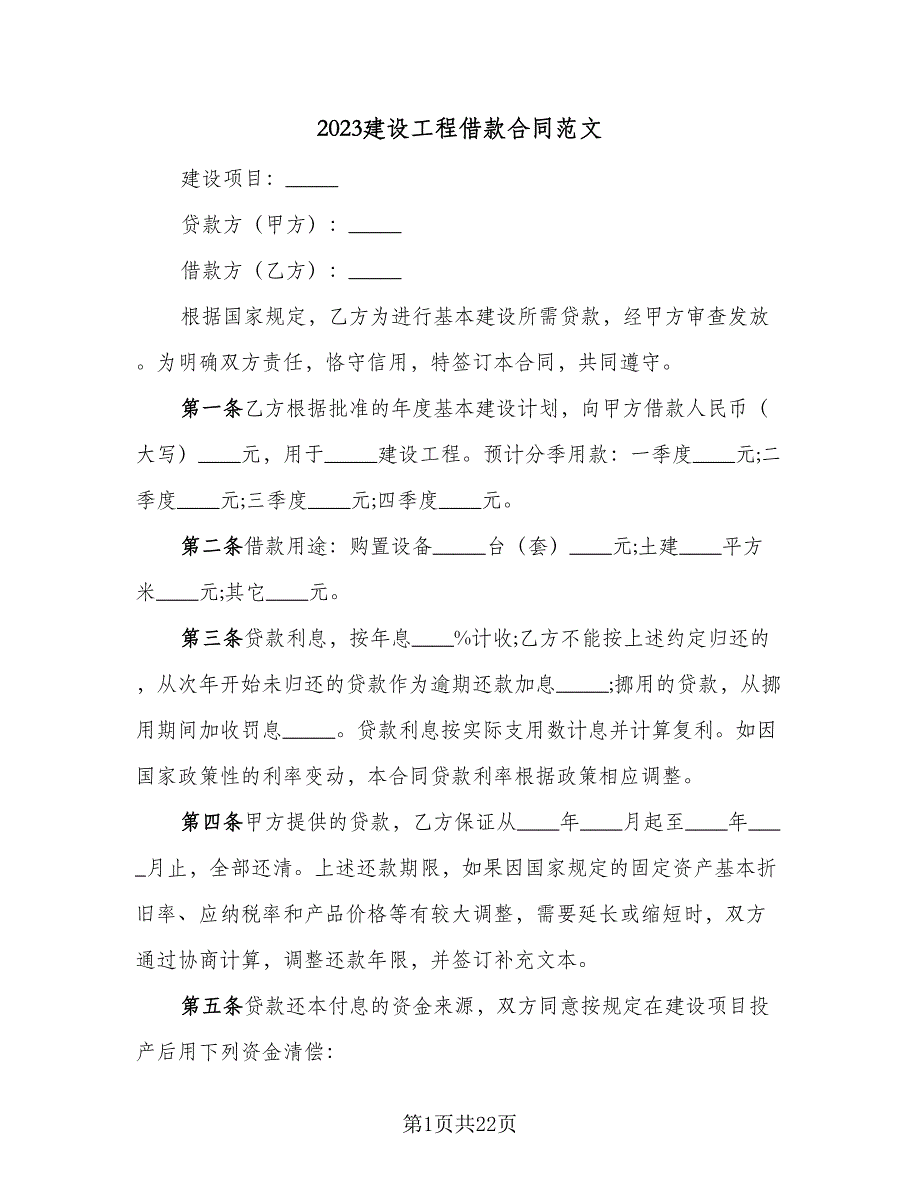 2023建设工程借款合同范文
建设项目：_____
贷款方（甲方）：_____
借款方（乙方）：_____
根据国家规定，乙方为进行基本建设所需贷款，经甲方审查发放
。为明确双方责任，恪守信用，特签订本合同，共同遵守。
第一条乙方根据批准的年度基本建设计划，向甲方借款人民币（
大写）____元，用于_____建设工程。预计分季用款：一季度____元;二
季度____元;三季度____元;四季度____元。
第二条借款用途：购置设备_____台（套）____元;土建____平方
米____元;其它____元。
第三条贷款利息，按年息____%计收;乙方不能按上述约定归还的
，从次年开始未归还的贷款作为逾期还款加息_____;挪用的贷款，从挪
用期间加收罚息_____。贷款利息按实际支用数计息并计算复利。如因
国家政策性的利率变动，本合同贷款利率根据政策相应调整。
第四条甲方提供的贷款，乙方保证从____年____月起至____年___
_月止，全部还清。上述还款期限，如果因国家规定的固定资产基本折
旧率、应纳税率和产品价格等有较大调整，需要延长或缩短时，双方
通过协商计算，调整还款年限，并签订补充文本。
第五条贷款还本付息的资金来源，双方同意按规定在建设项目投
产后用下列资金清偿：
第1页共22页